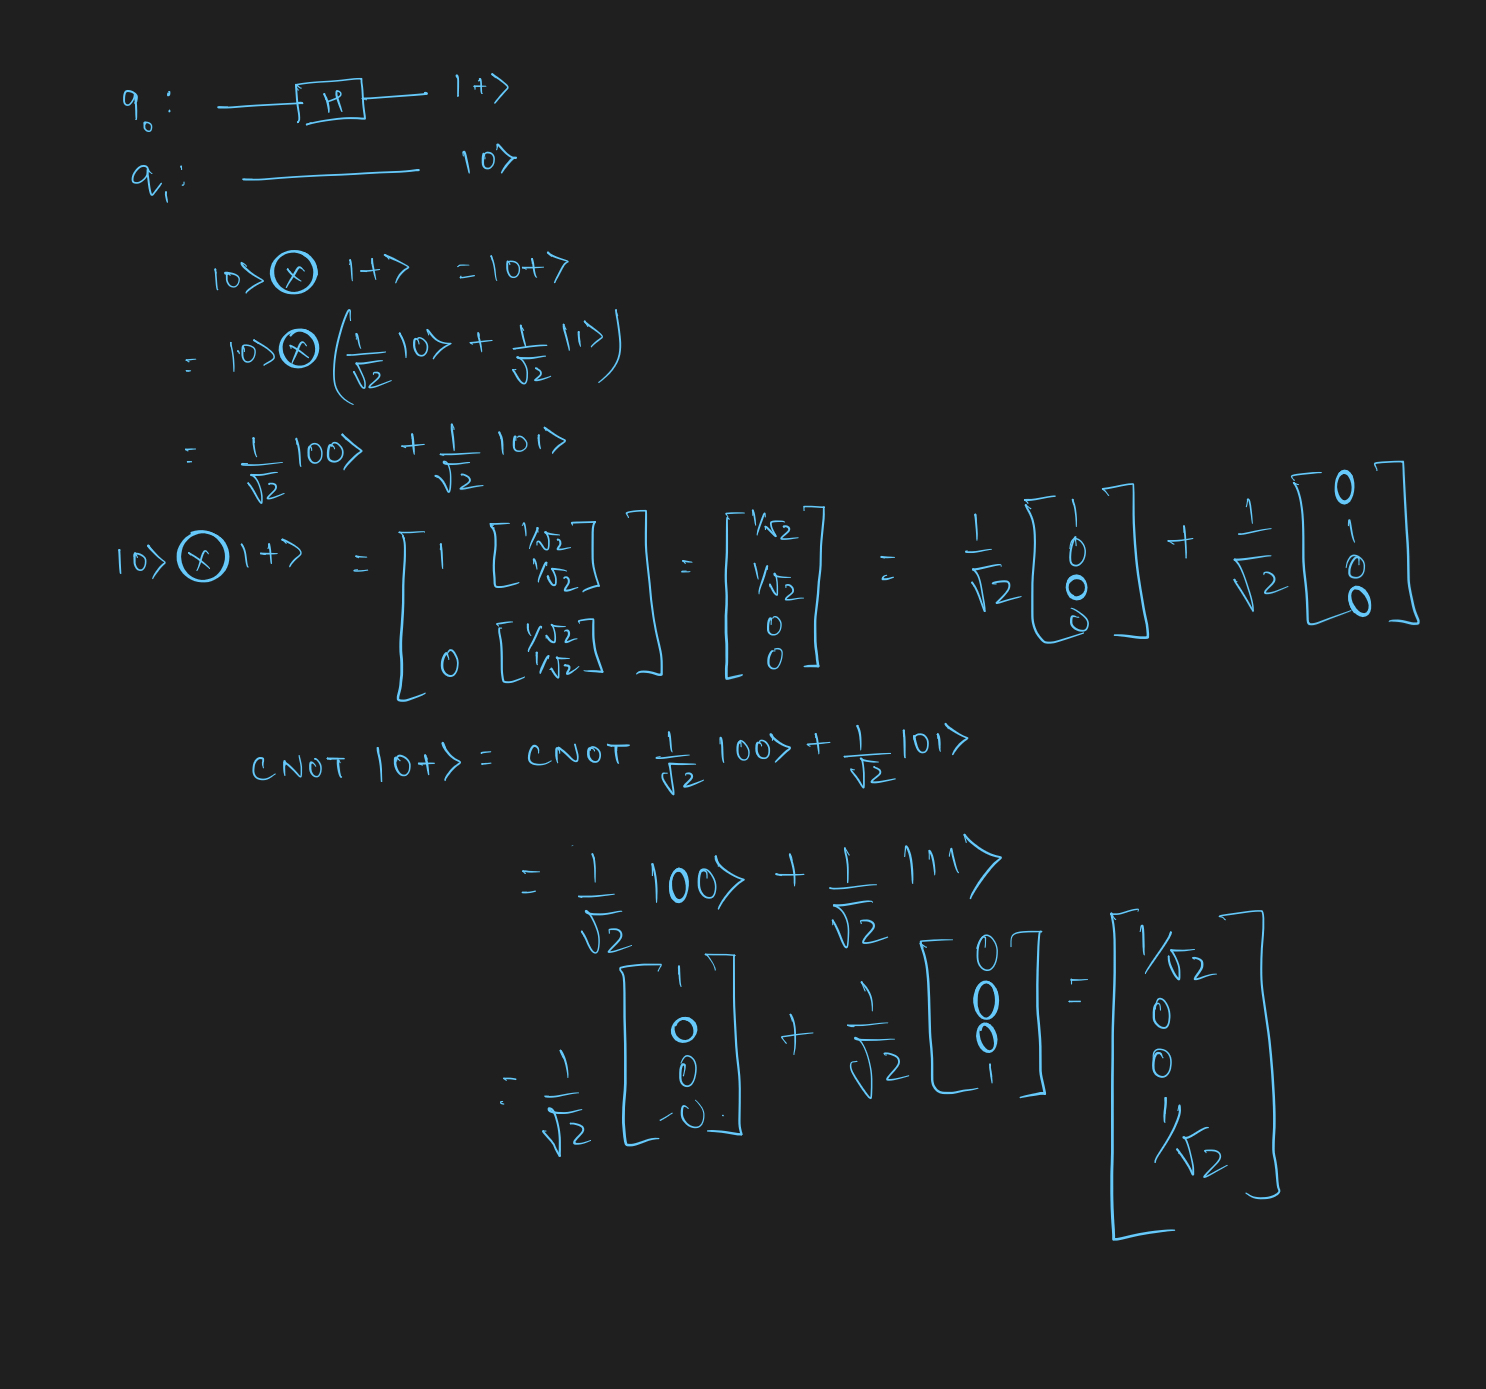 q₀: H |+>
q₁: |0>
|0> ⊗ |+> = |0+>
= |0> ⊗ (1/√2 |0> + 1/√2 |1>)
= 1/√2 |00> + 1/√2 |01>
|0> ⊗ |+> = [1 [1/√2 1/√2] 0 [1/√2 1/√2]] = [1/√2 1/√2 0 0] = 1/√2 [1 0 0 0] + 1/√2 [0 1 0 0]
CNOT |0+> = CNOT 1/√2 |00> + 1/√2 |01>
= 1/√2 |00> + 1/√2 |11>
= 1/√2 [1 0 0 0] + 1/√2 [0 0 0 1] = [1/√2 0 0 1/√2]